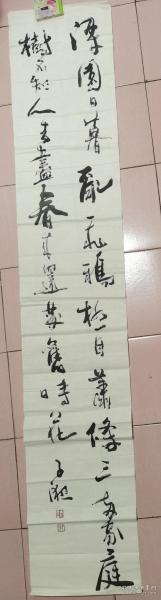 梁園日暮亂飛鴉極目蕭條三兩家庭
樹不知人去盡春來還發舊時花